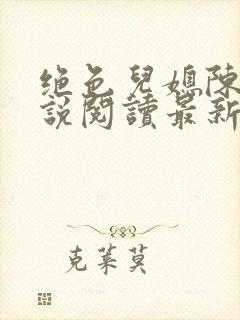 绝色兒媳陳
說閱讀最新
克莱莫